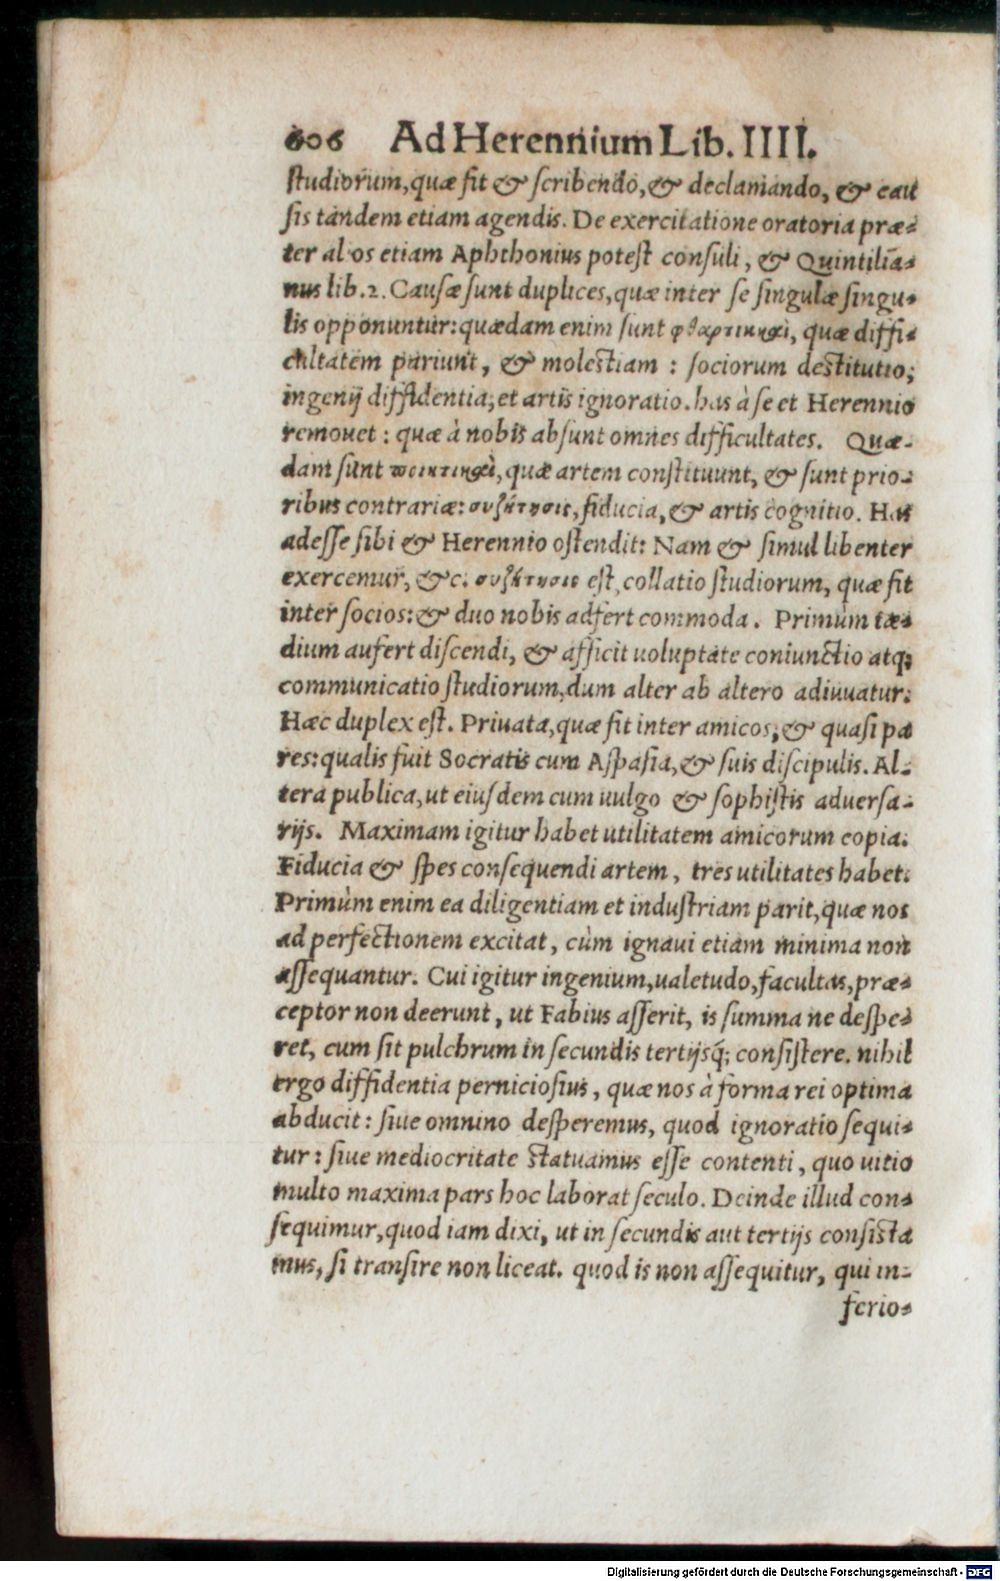 606 Ad Herennium Lib. IIII.
studiorum, quæ fit & scribendo, & declamando, & cau
sis tandem etiam agendis. De exercitatione oratoria præ-
ter alios etiam Aphthonius potest consuli, & Quintilia-
nus lib.2. Causæ sunt duplices, quæ inter se singulæ singu-
lis opponuntur: quædam enim sunt φθαρτικαὶ, quæ diffi-
cultatem pariunt, & molestiam : sociorum destitutio;
ingenij diffidentia, et artis ignoratio. has à se et Herennio
remouet : quæ à nobis absunt omnes difficultates. Quæ-
dam sunt ποιητικαὶ, quæ artem constituunt, & sunt prio-
ribus contrariæ: συζήτησις, fiducia, & artis cognitio. Has
adesse sibi & Herennio ostendit: Nam & simul libenter
exercemur, &c. συζήτησις est, collatio studiorum, quæ fit
inter socios: & duo nobis adfert commoda. Primùm tæ-
dium aufert discendi, & afficit uoluptate coniunctio atq;
communicatio studiorum, dum alter ab altero adiuuatur.
Hæc duplex est. Priuata, quæ fit inter amicos, & quasi pa
res: qualis fuit Socratis cum Aspasia, & suis discipulis. Al-
tera publica, ut eiusdem cum uulgo & sophistis aduersa-
rijs. Maximam igitur habet utilitatem amicorum copia.
Fiducia & spes consequendi artem, tres utilitates habet.
Primùm enim ea diligentiam et industriam parit, quæ nos
ad perfectionem excitat, cùm ignaui etiam minima non
assequantur. Cui igitur ingenium, ualetudo, facultas, præ-
ceptor non deerunt, ut Fabius asserit, is summa ne despe-
ret, cum sit pulchrum in secundis tertijsq́; consistere. nihil
ergo diffidentia perniciosius, quæ nos à forma rei optima
abducit: siue omnino desperemus, quod ignoratio sequi-
tur: siue mediocritate statuamus esse contenti, quo uitio
multo maxima pars hoc laborat seculo. Deinde illud con-
sequimur, quod iam dixi, ut in secundis aut tertijs consista
mus, si transire non liceat. quod is non assequitur, qui in-
ferio-
Digitalisierung gefördert durch die Deutsche Forschungsgemeinschaft - DFG